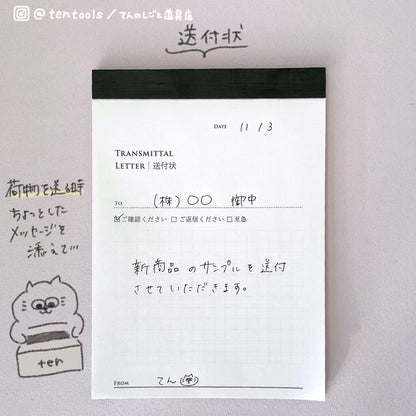 @tentools / てんのしごと道具店
送付状
DATE 11/3
TRANSMITTAL
LETTER｜送付状
TO (株)〇〇 御中
☑ご確認ください □ご返信ください □至急
新商品のサンプルを送付
させていただきます。
FROM てん
荷物を送る時
ちょっとした
メッセージを
添えて…
ten